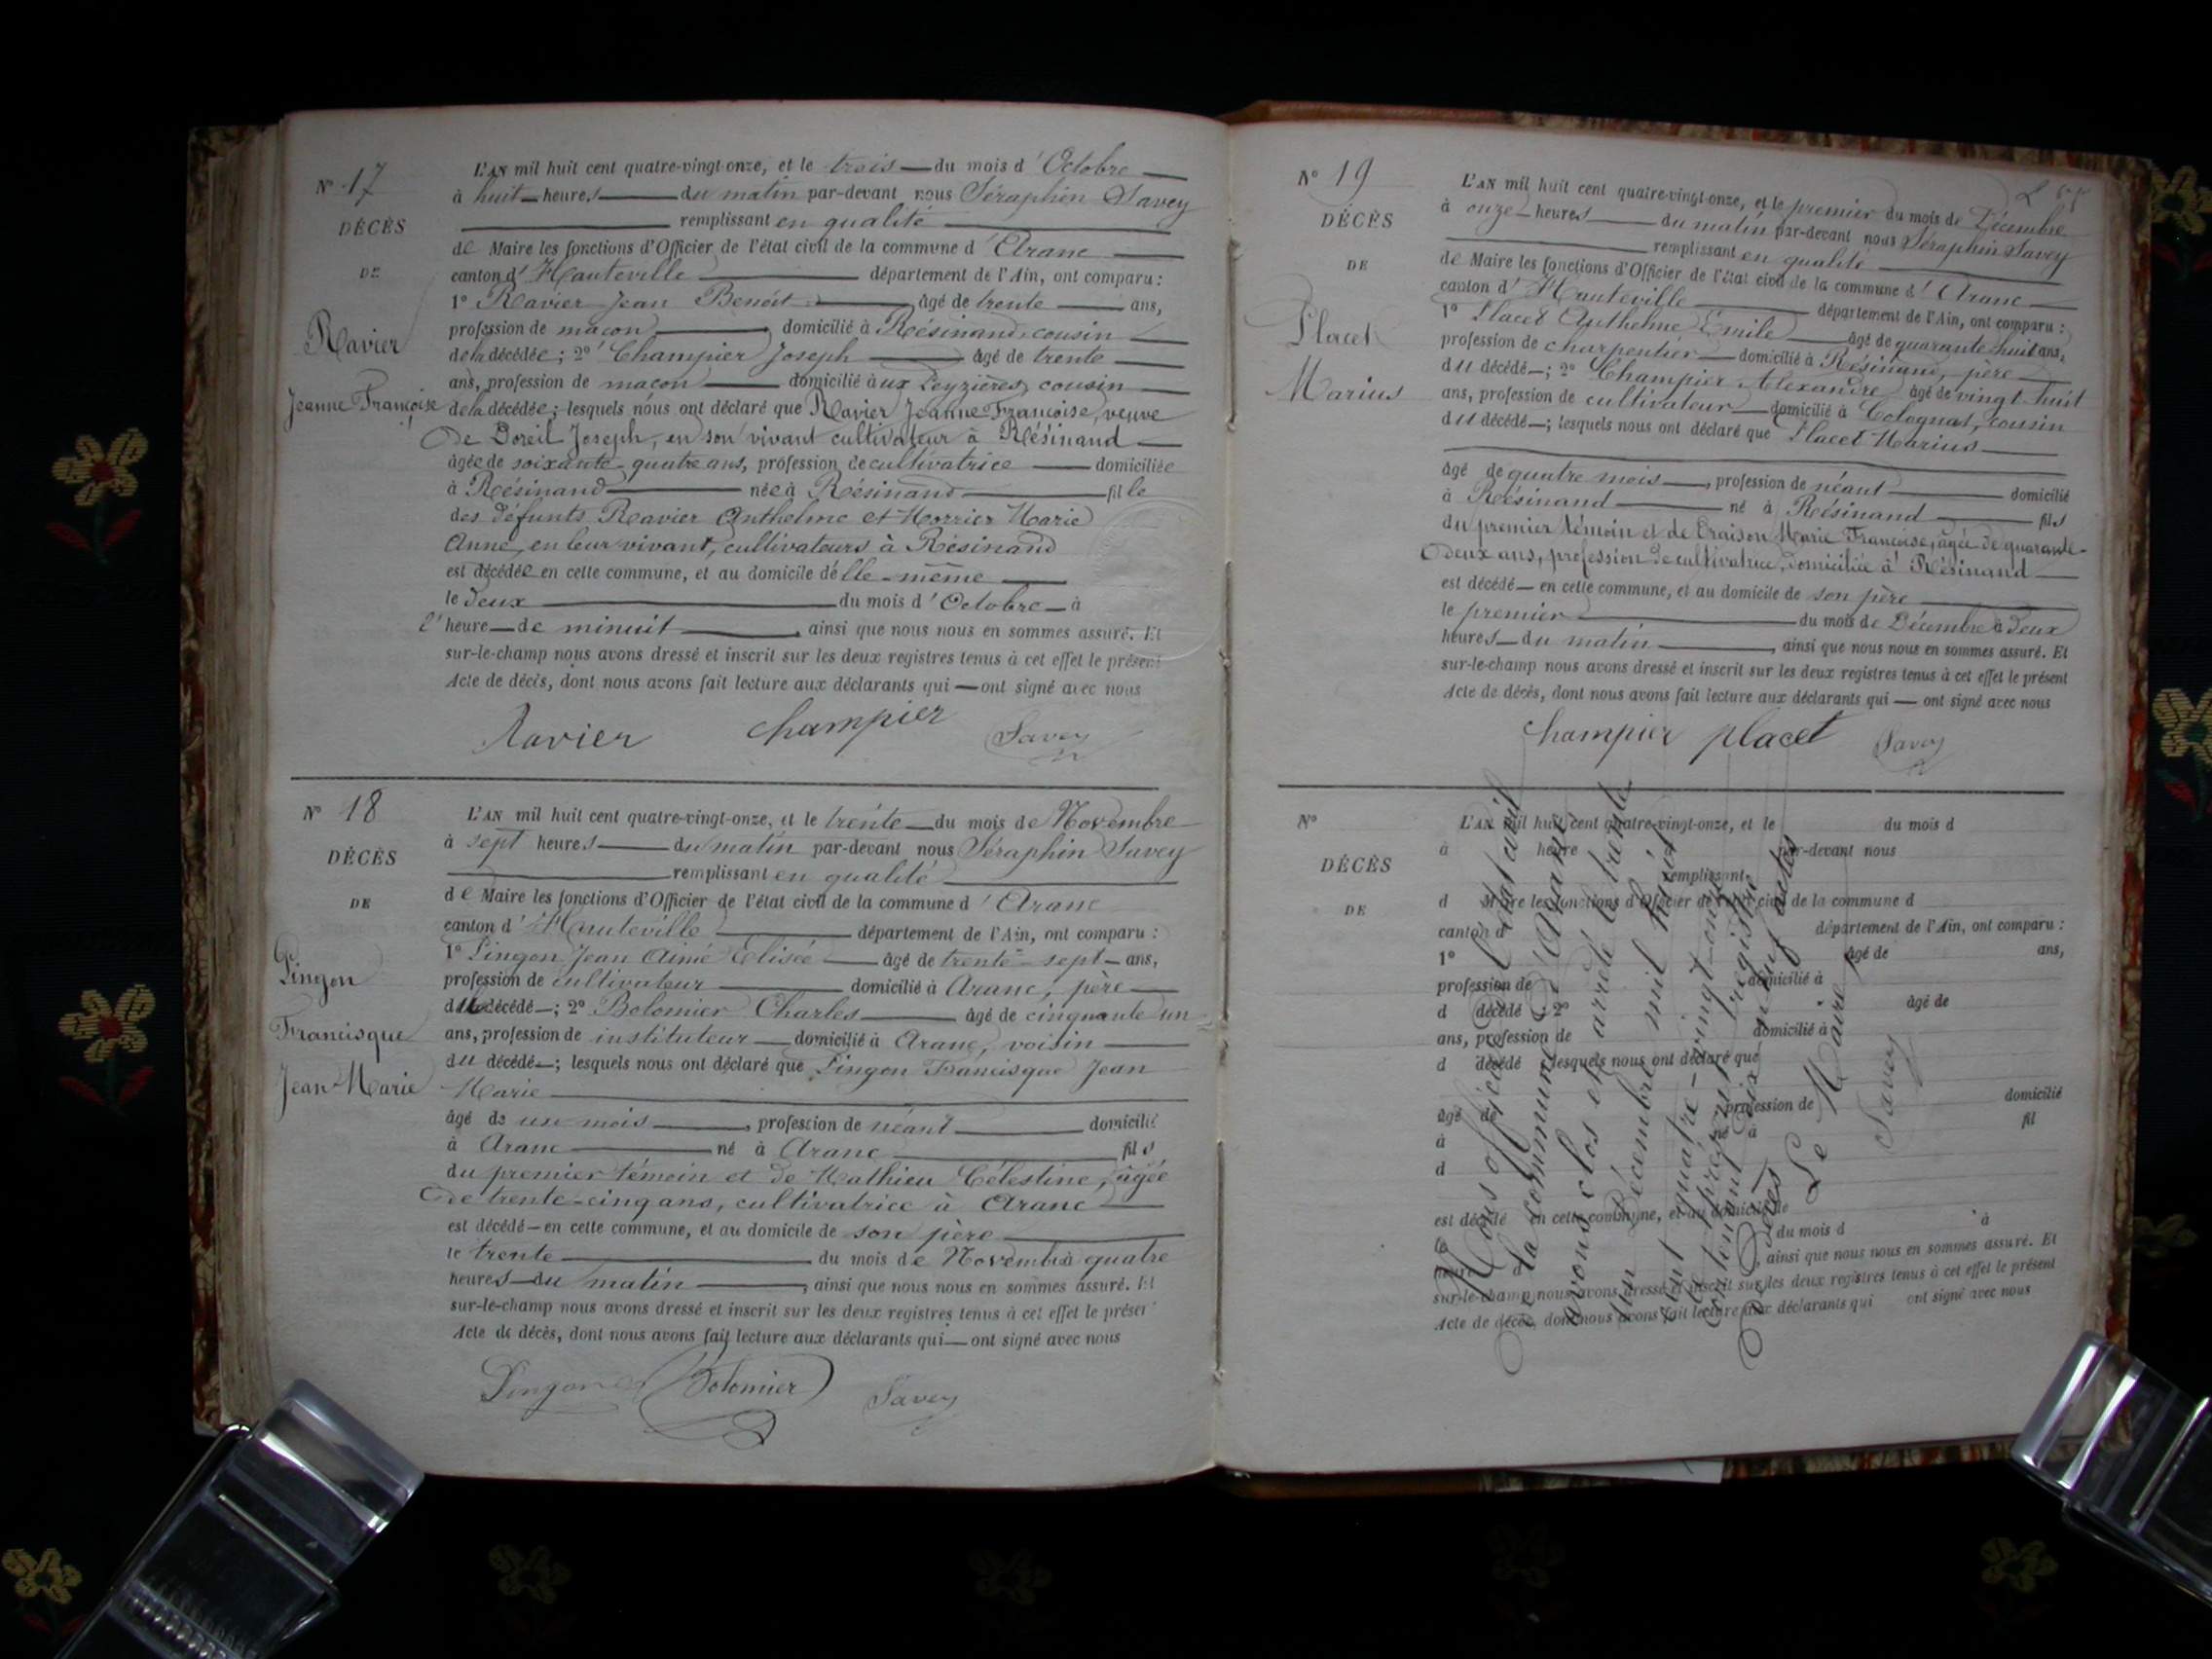 N° 17
DÉCÈS
DE
Ravier
Jeanne Françoise
L'AN mil huit cent quatre-vingt-onze, et le trois du mois d'Octobre
à huit heures du matin par-devant nous Séraphin Savey
remplissant en qualité
de Maire les fonctions d'Officier de l'état civil de la commune d'Aranc
canton d'Hauteville département de l'Ain, ont comparu :
1° Ravier Jean Benoit âgé de trente ans,
profession de maçon, domicilié à Résinand, cousin
de la décédée ; 2° Champier Joseph âgé de trente
ans, profession de maçon domicilié aux Leyzières, cousin
de la décédée ; lesquels nous ont déclaré que Ravier Jeanne Françoise, veuve
de Doreil Joseph, en son vivant cultivateur à Résinand
âgée de soixante-quatre ans, profession de cultivatrice domiciliée
à Résinand née à Résinand fille
des défunts Ravier Anthelme et Morrier Marie
Anne, en leur vivant, cultivateurs à Résinand
est décédée en cette commune, et au domicile d'elle-même
le deux du mois d'Octobre à
l'heure de minuit, ainsi que nous nous en sommes assuré. Et
sur-le-champ nous avons dressé et inscrit sur les deux registres tenus à cet effet le présent
Acte de décès, dont nous avons fait lecture aux déclarants qui — ont signé avec nous
Ravier Champier Savey
N° 18
DÉCÈS
DE
Pingon
Francisque
Jean Marie
L'AN mil huit cent quatre-vingt-onze, et le trente du mois de Novembre
à sept heures du matin par-devant nous Séraphin Savey
remplissant en qualité
de Maire les fonctions d'Officier de l'état civil de la commune d'Aranc
canton d'Hauteville département de l'Ain, ont comparu :
1° Pingon Jean Aimé Elisée âgé de trente-sept ans,
profession de cultivateur domicilié à Aranc, père
du décédé ; 2° Bolomier Charles âgé de cinquante un
ans, profession de instituteur domicilié à Aranc, voisin
du décédé ; lesquels nous ont déclaré que Pingon Francisque Jean
Marie
âgé de un mois, profession de néant domicilié
à Aranc né à Aranc fils
du premier témoin et de Mathieu Célestine, âgée
de trente-cinq ans, cultivatrice à Aranc
est décédé en cette commune, et au domicile de son père
le trente du mois de Novembre à quatre
heures du matin, ainsi que nous nous en sommes assuré. Et
sur-le-champ nous avons dressé et inscrit sur les deux registres tenus à cet effet le présent
Acte de décès, dont nous avons fait lecture aux déclarants qui — ont signé avec nous
Pingon Bolomier Savey
N° 19
DÉCÈS
DE
Placet
Marius
L'AN mil huit cent quatre-vingt-onze, et le premier du mois de Décembre
à onze heures du matin par-devant nous Séraphin Savey
remplissant en qualité
de Maire les fonctions d'Officier de l'état civil de la commune d'Aranc
canton d'Hauteville département de l'Ain, ont comparu :
1° Placet Anthelme Emile âgé de quarante huit ans,
profession de charpentier domicilié à Résinand, père
du décédé ; 2° Champier Alexandre âgé de vingt huit
ans, profession de cultivateur domicilié à Colognat, cousin
du décédé ; lesquels nous ont déclaré que Placet Marius
âgé de quatre mois, profession de néant domicilié
à Résinand né à Résinand fils
du premier témoin et de Craison Marie Françoise, âgée de quarante-
deux ans, profession de cultivatrice, domiciliée à Résinand
est décédé en cette commune, et au domicile de son père
le premier du mois de Décembre à deux
heures du matin, ainsi que nous nous en sommes assuré. Et
sur-le-champ nous avons dressé et inscrit sur les deux registres tenus à cet effet le présent
Acte de décès, dont nous avons fait lecture aux déclarants qui — ont signé avec nous
Champier placet Savey
N°
DÉCÈS
DE
L'AN mil huit cent quatre-vingt-onze, et le du mois d
à heure par-devant nous
remplissant
d Maire les fonctions d'Officier de l'état civil de la commune d
canton d département de l'Ain, ont comparu :
1° âgé de ans,
profession de domicilié à
d décédé ; 2° âgé de
ans, profession de domicilié à
d décédé lesquels nous ont déclaré que
âgé de profession de domicilié
à né à fil
d
est décédé en cette commune, et au domicile de
le du mois d à
heure d , ainsi que nous nous en sommes assuré. Et
sur-le-champ nous avons dressé et inscrit sur les deux registres tenus à cet effet le présent
Acte de décès, dont nous avons fait lecture aux déclarants qui ont signé avec nous
Nous officier de l'état civil
de la commune d'Aranc
avons clos et arrêté le trente
un Décembre mil huit
cent quatre-vingt-onze
le présent registre
contenant dix neuf actes
de Décès
Le Maire
Savey